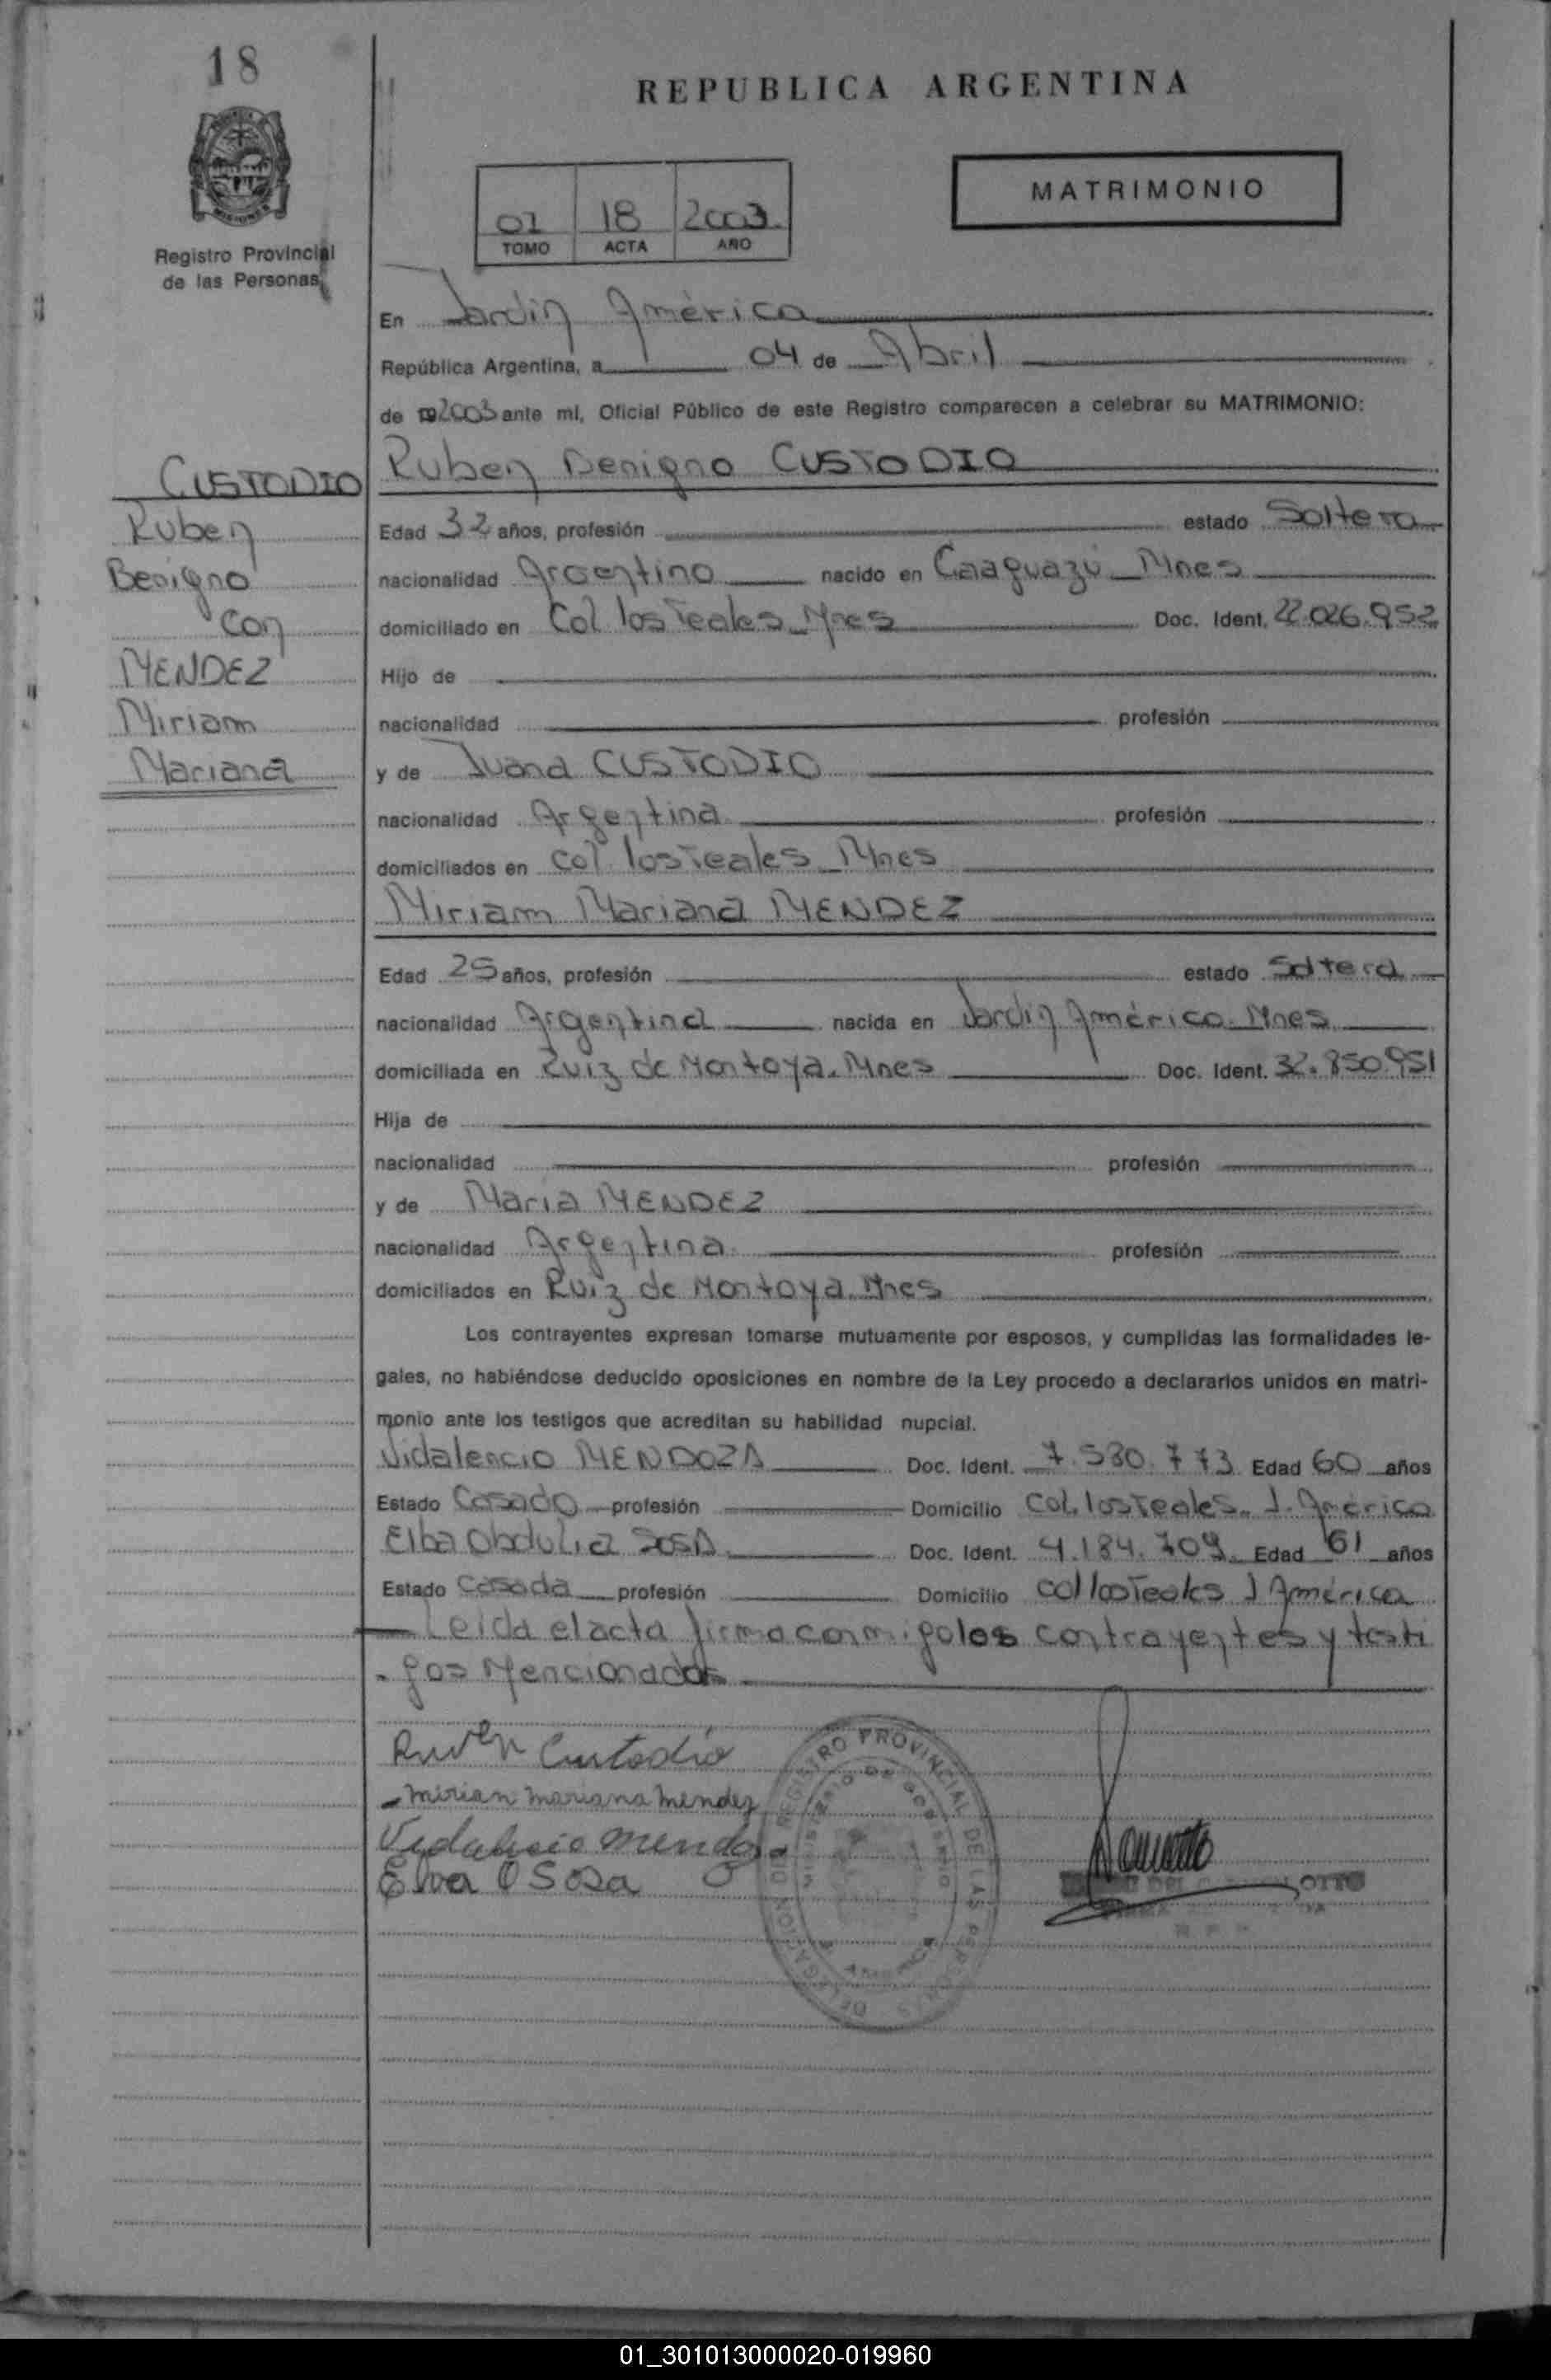 18
REPUBLICA ARGENTINA
MATRIMONIO
01 18 2003
TOMO ACTA AÑO
Registro Provincial
de las Personas
En Jardin América
República Argentina, a 04 de Abril
de 2003 ante mí, Oficial Público de este Registro comparecen a celebrar su MATRIMONIO:
CUSTODIO
Ruben
Benigno
con
MENDEZ
Miriam
Mariana
Ruben Benigno CUSTODIO
Edad 32 años, profesión estado Soltero
nacionalidad Argentino nacido en Caaguazú Mnes
domiciliado en Col los Teales Mnes Doc. Ident. 22.026.952
Hijo de
nacionalidad profesión
y de Juana CUSTODIO
nacionalidad Argentina profesión
domiciliados en Col los Teales Mnes
Miriam Mariana MENDEZ
Edad 25 años, profesión estado Soltera
nacionalidad Argentina nacida en Jardin América Mnes
domiciliada en Ruiz de Montoya. Mnes Doc. Ident. 32.850.951
Hija de
nacionalidad profesión
y de Maria MENDEZ
nacionalidad Argentina profesión
domiciliados en Ruiz de Montoya. Mnes
Los contrayentes expresan tomarse mutuamente por esposos, y cumplidas las formalidades le-
gales, no habiéndose deducido oposiciones en nombre de la Ley procedo a declararlos unidos en matri-
monio ante los testigos que acreditan su habilidad nupcial.
Vidalencio MENDOZA Doc. Ident. 7.530.773 Edad 60 años
Estado Casado profesión Domicilio Col. los Teales. J. América
Elba Obdulia SOSA Doc. Ident. 4.184.709 Edad 61 años
Estado Casada profesión Domicilio Col los Teales J América
Leida el acta firma conmigo los contrayentes y testi
gos Mencionados
Ruven Custodio
Mirian Mariana Mendez
Elva O Sosa
REGISTRO PROVINCIAL DE LAS PERSONAS
01_301013000020-019960